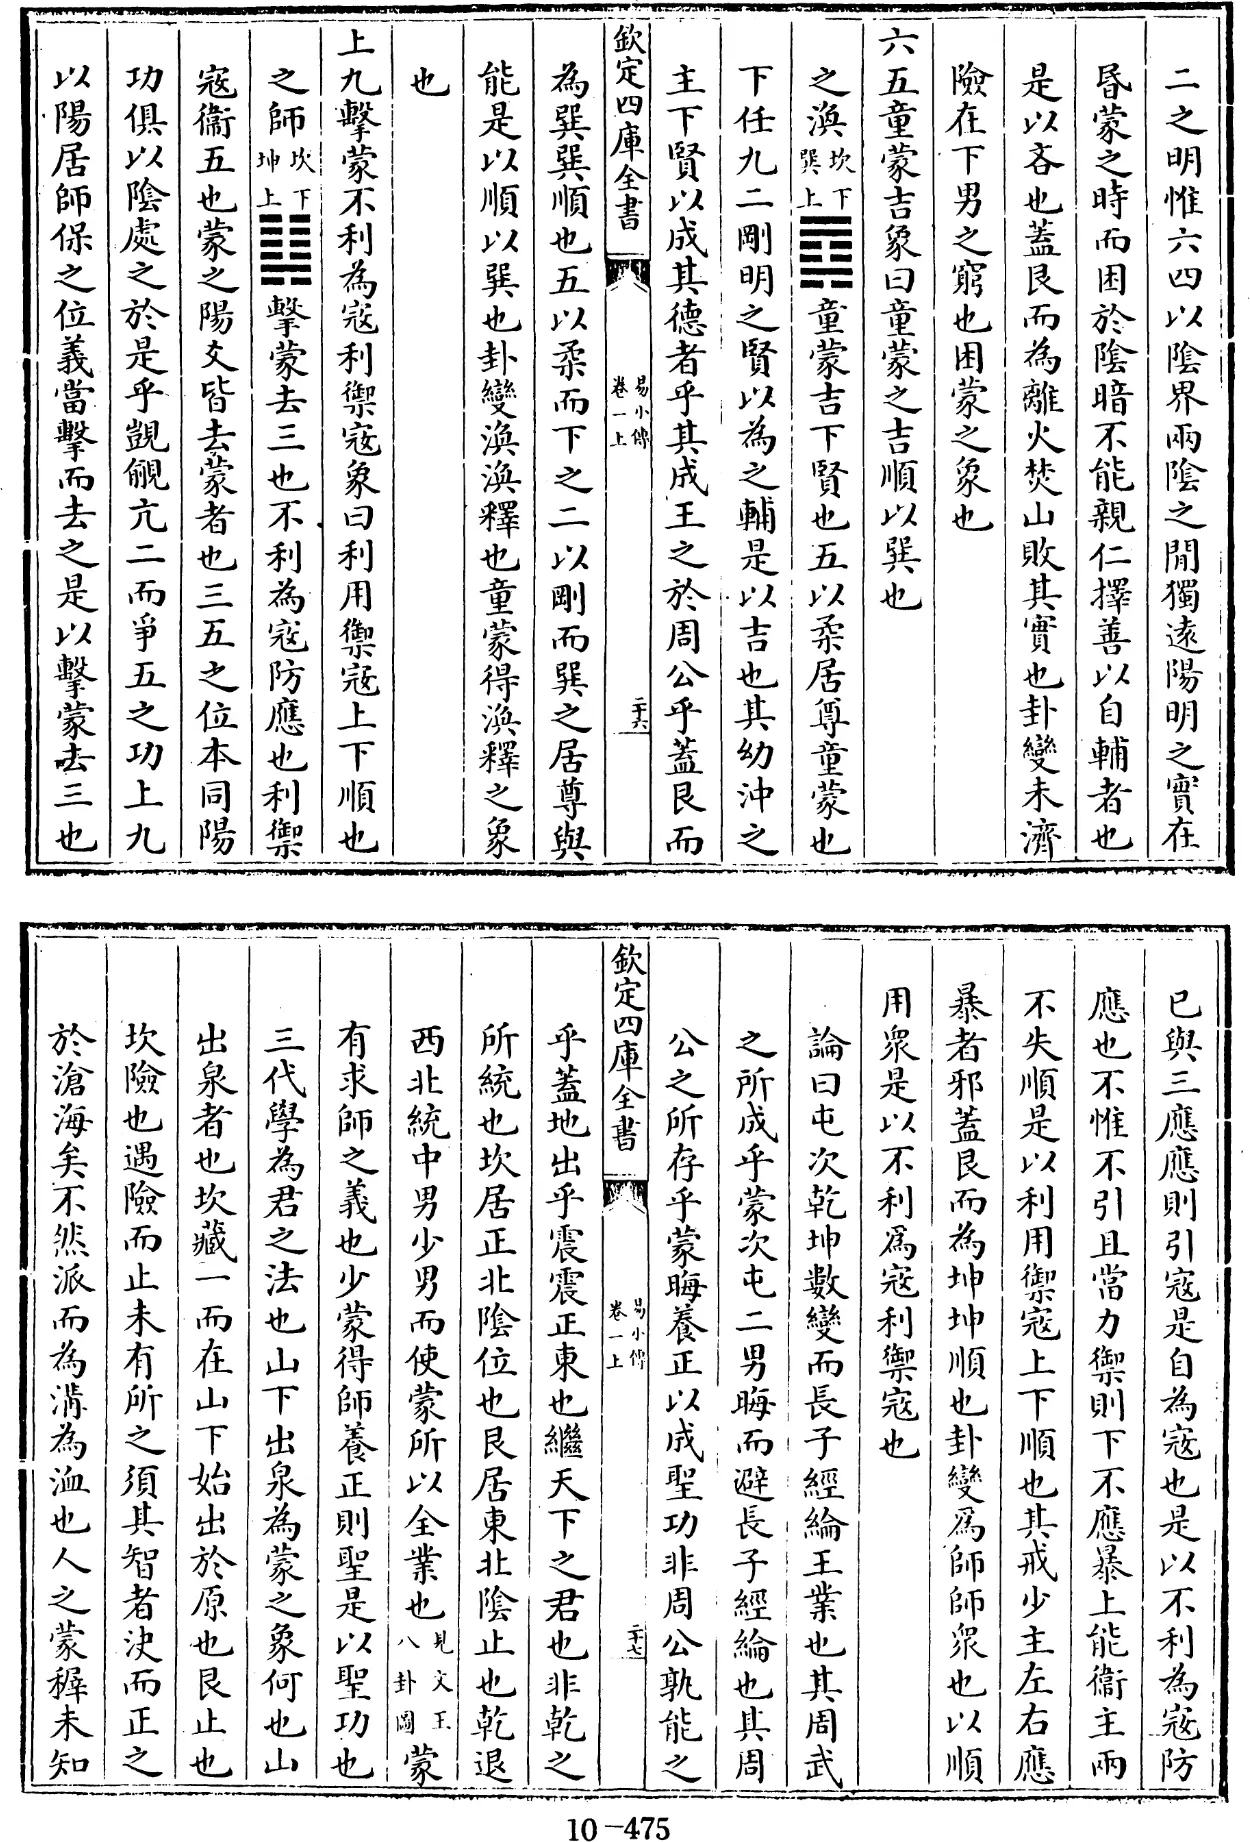 二之明惟六四以陰界兩陰之間獨遠陽明之實在
昏蒙之時而困於陰暗不能親仁擇善以自輔者也
是以吝也蓋艮而為離火焚山敗其實也卦變未濟
險在下男之窮也困蒙之象也
六五童蒙吉象曰童蒙之吉順以巽也
之渙坎下巽上䷺童蒙吉下賢也五以柔居尊童蒙也
下任九二剛明之賢以為之輔是以吉也其幼沖之
主下賢以成其德者乎其成王之於周公乎蓋艮而
欽定四庫全書
易小傳
卷一上
二十六
為巽巽順也五以柔而下之二以剛而巽之居尊與
能是以順以巽也卦變渙渙釋也童蒙得渙釋之象
也
上九擊蒙不利為寇利禦寇象曰利用禦寇上下順也
之師坎下坤上䷆擊蒙去三也不利為寇防應也利禦
寇衞五也蒙之陽爻皆去蒙者也三五之位本同陽
功俱以陰處之於是乎覬覦亢二而爭五之功上九
以陽居師保之位義當擊而去之是以擊蒙去三也
已與三應應則引寇是自為寇也是以不利為寇防
應也不惟不引且當力禦則下不應暴上能衞主兩
不失順是以利用禦寇上下順也其戒少主左右應
暴者邪蓋艮而為坤坤順也卦變為師師衆也以順
用衆是以不利為寇利禦寇也
論曰屯次乾坤數變而長子經綸王業也其周武
之所成乎蒙次屯二男晦而避長子經綸也其周
公之所存乎蒙晦養正以成聖功非周公孰能之
欽定四庫全書
易小傳
卷一上
二十七
乎蓋地出乎震震正東也繼天下之君也非乾之
所統也坎居正北陰位也艮居東北陰止也乾退
西北統中男少男而使蒙所以全業也見文王八卦圖蒙
有求師之義也少蒙得師養正則聖是以聖功也
三代學為君之法也山下出泉為蒙之象何也山
出泉者也坎藏一而在山下始出於原也艮止也
坎險也遇險而止未有所之須其智者決而正之
於滄海矣不然派而為溝為洫也人之蒙穉未知
10-475